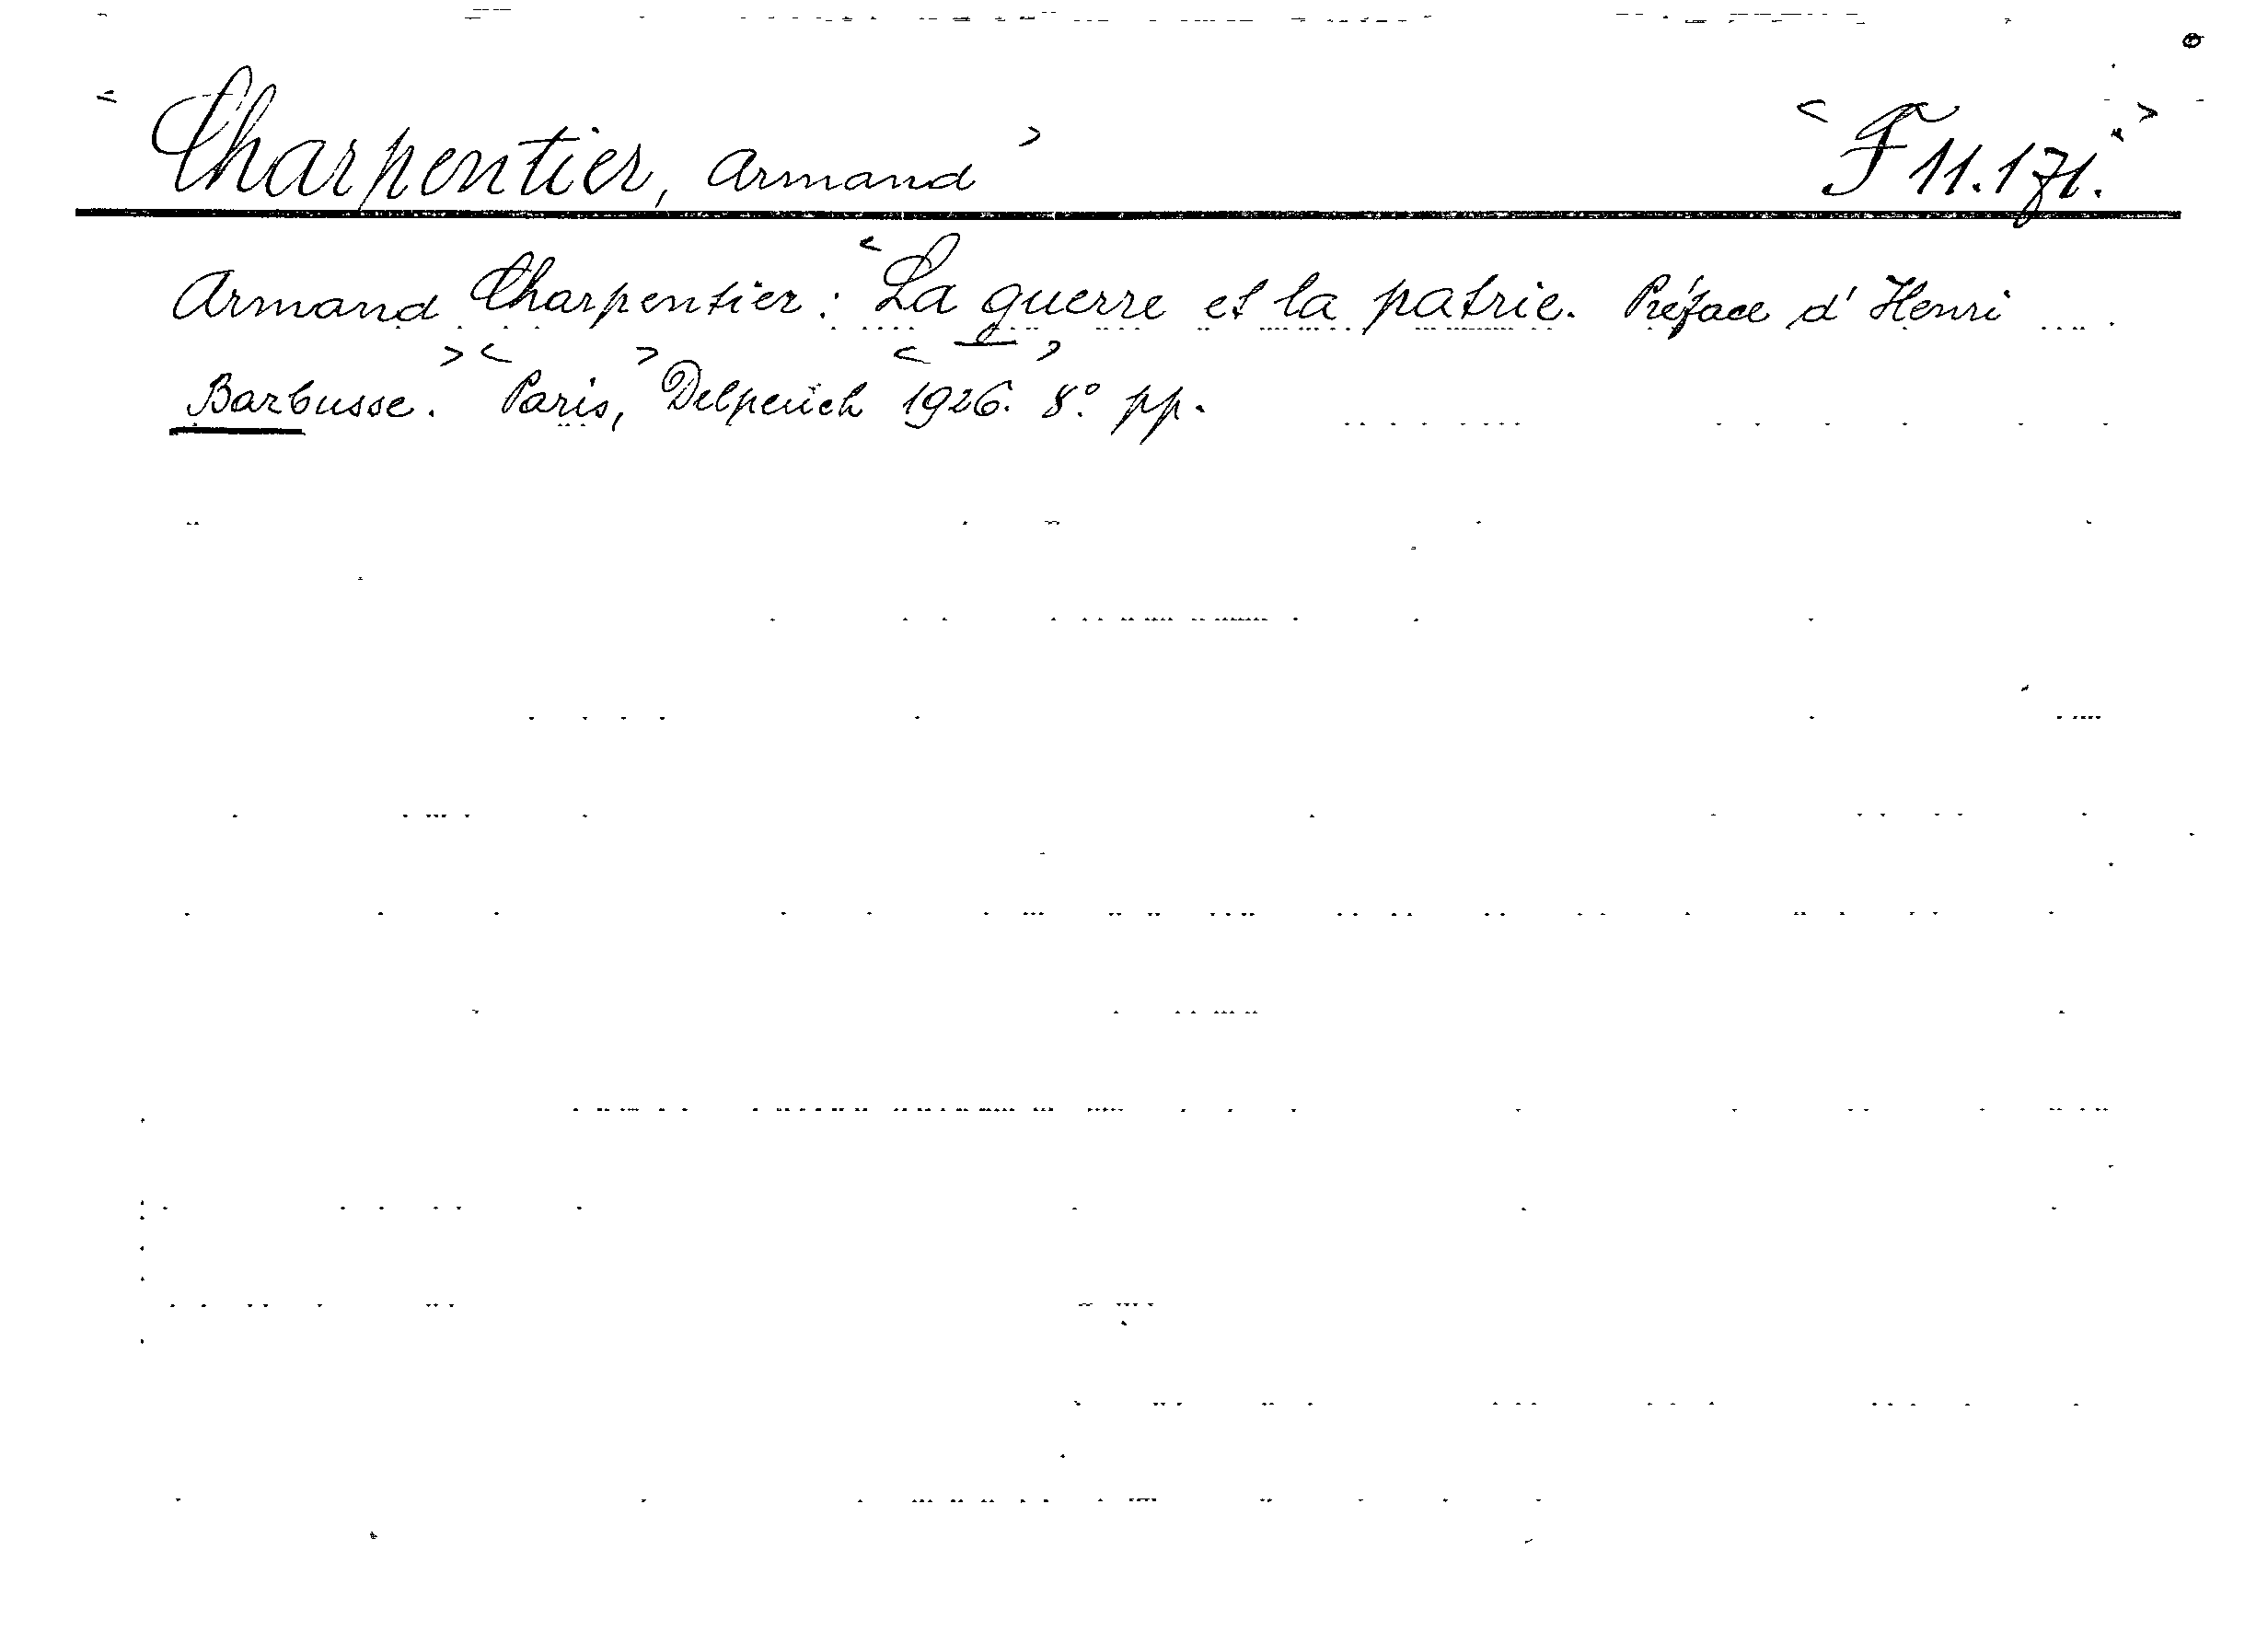 < Charpentier, Armand > < F 11.171. >
Armand Charpentier: < La guerre et la patrie. Préface d' Henri
Barbusse. > < Paris, > Delpeuch < 1926. > 8º. pp.